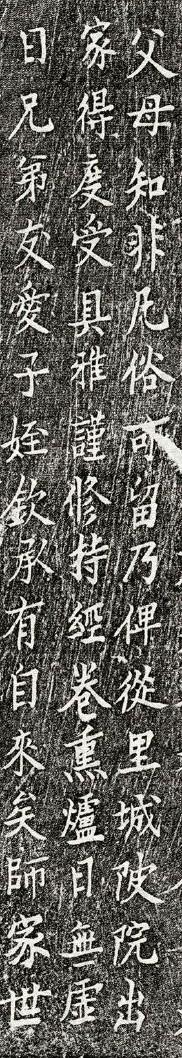 父母知非凡俗可留乃俾從里城陂院出
家得度受具雅謹修持經卷熏爐日無虛
日兄弟友愛子姪欽承有自來矣師家世